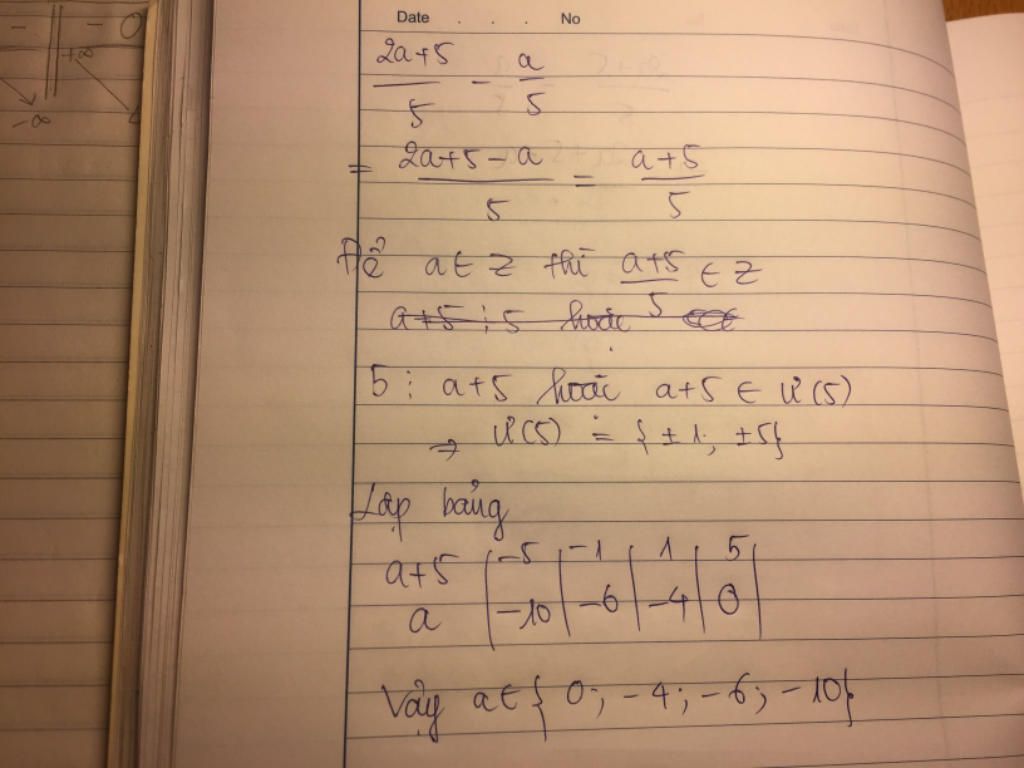 Date . . . No
- || - 0
+∞
-∞
2a+5/5 - a/5
= 2a+5-a/5 = a+5/5
Để a ∈ Z thì a+5/5 ∈ Z
a+5 ⋮ 5 hoặc
5 ⋮ a+5 hoặc a+5 ∈ Ư(5)
→ Ư(5) = {±1; ±5}
Lập bảng
a+5 | -5 | -1 | 1 | 5 |
a | -10 | -6 | -4 | 0 |
Vậy a ∈ { 0; -4; -6; -10}